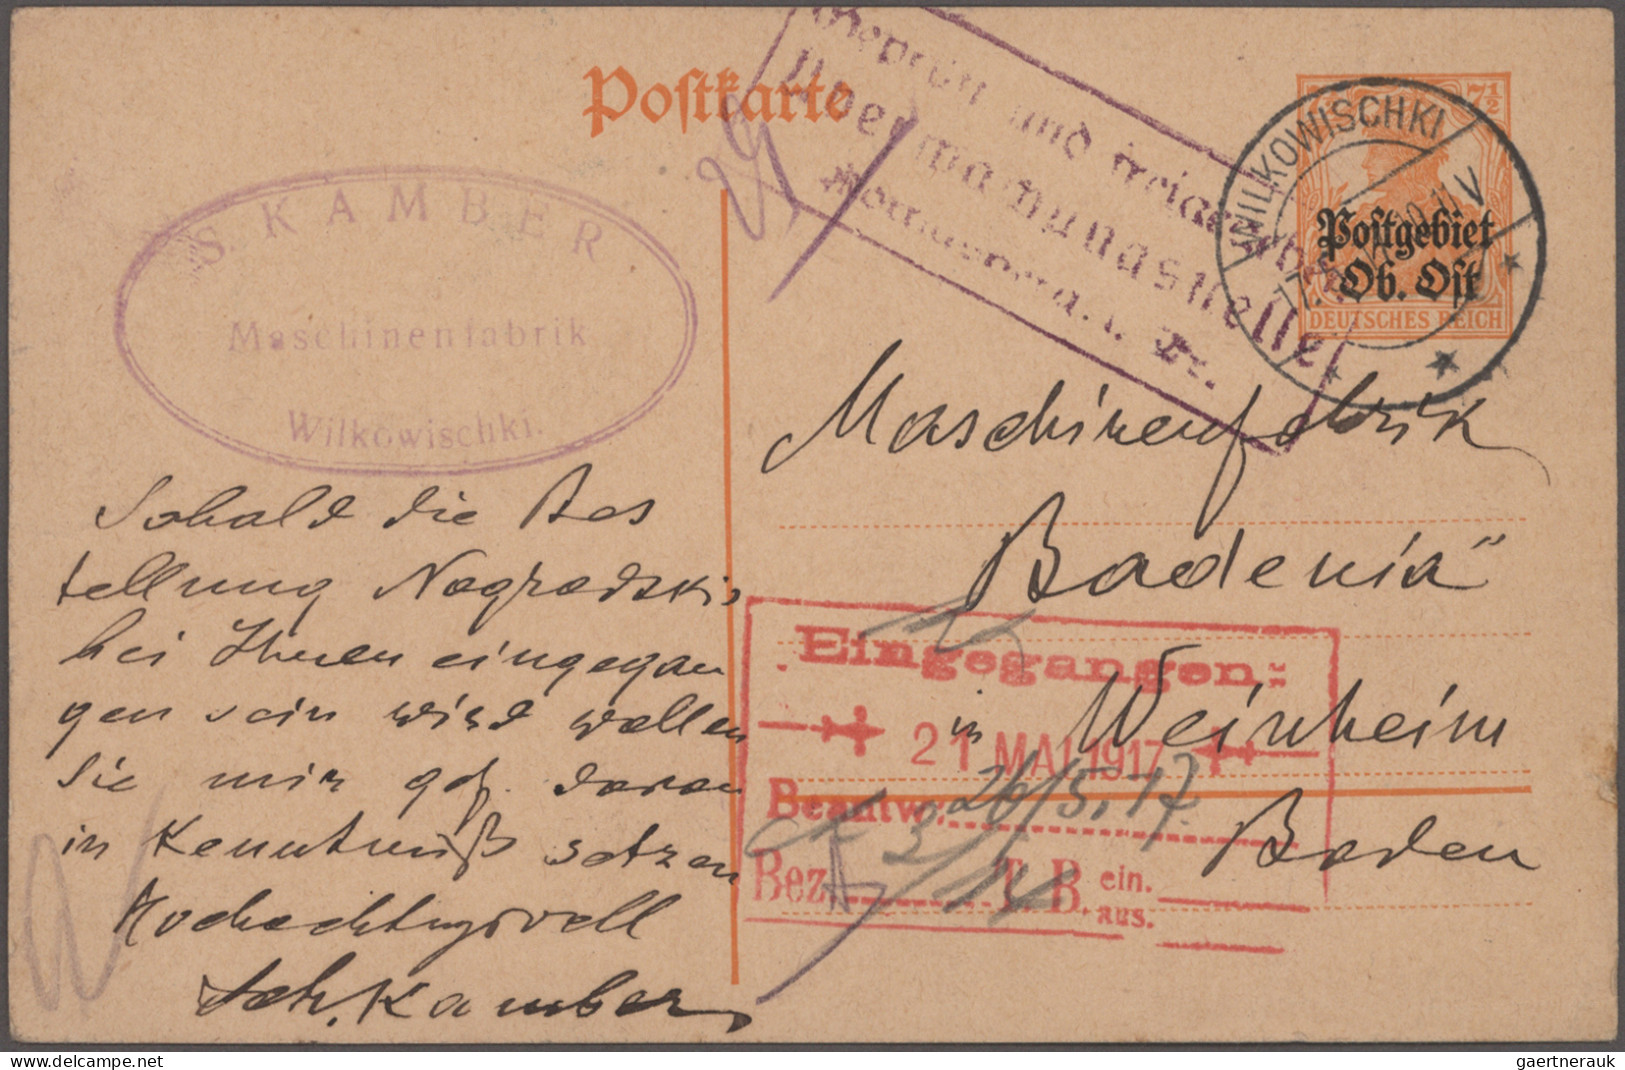 Postkarte
Geprüft und freigegeben
Überwachungsstelle
Königsberg i. Pr.
7½
Postgebiet
Ob. Ost
DEUTSCHES REICH
WILKOWISCHKI
S. KAMBER
Maschinenfabrik
Wilkowischki.
Sobald die Bes
tellung Nogradskis
bei Ihnen eingegan
gen sein wird wollen
sie mir gef. davon
in Kenntniß setzen
Hochachtungsvoll
Sch. Kamber
Maschinenfabrik
Badenia"
in Weinheim
Baden
Eingegangen:
21 MAI 1917
Beantw. 26/5.17.
Bez. T. B. ein.
aus.
posta-magazine.com
gaertnerauk